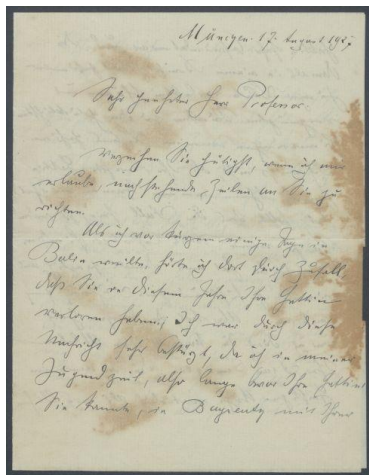 München 17. August 1927
Sehr geehrter Herr Professor.
Verzeihen Sie gütigst, wenn ich mir
erlaube, nachstehende Zeilen an Sie zu
richten.
Als ich vor kurzem einige Tage in
Berlin weilte, hörte ich dort durch Zufall,
daß Sie vor diesem Jahre Ihre Gattin
verloren haben. Ich war durch diese
Nachricht sehr bestürzt, da ich in meiner
Jugendzeit, also lange bevor Ihre Gattin
Sie kannte, in mit Ihrer